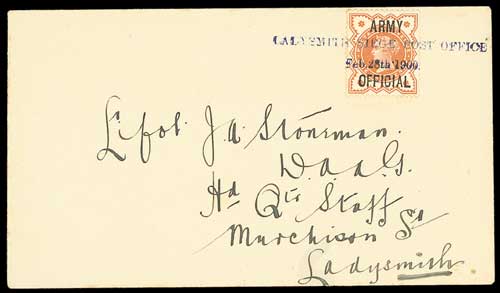 ARMY
LADYSMITH SIEGE POST OFFICE
Feb. 28th 1900.
OFFICIAL
Lt Col. J A Stoneman.
D.a.a.G.
Hd Qrs Staff
Murchison St
Ladysmith